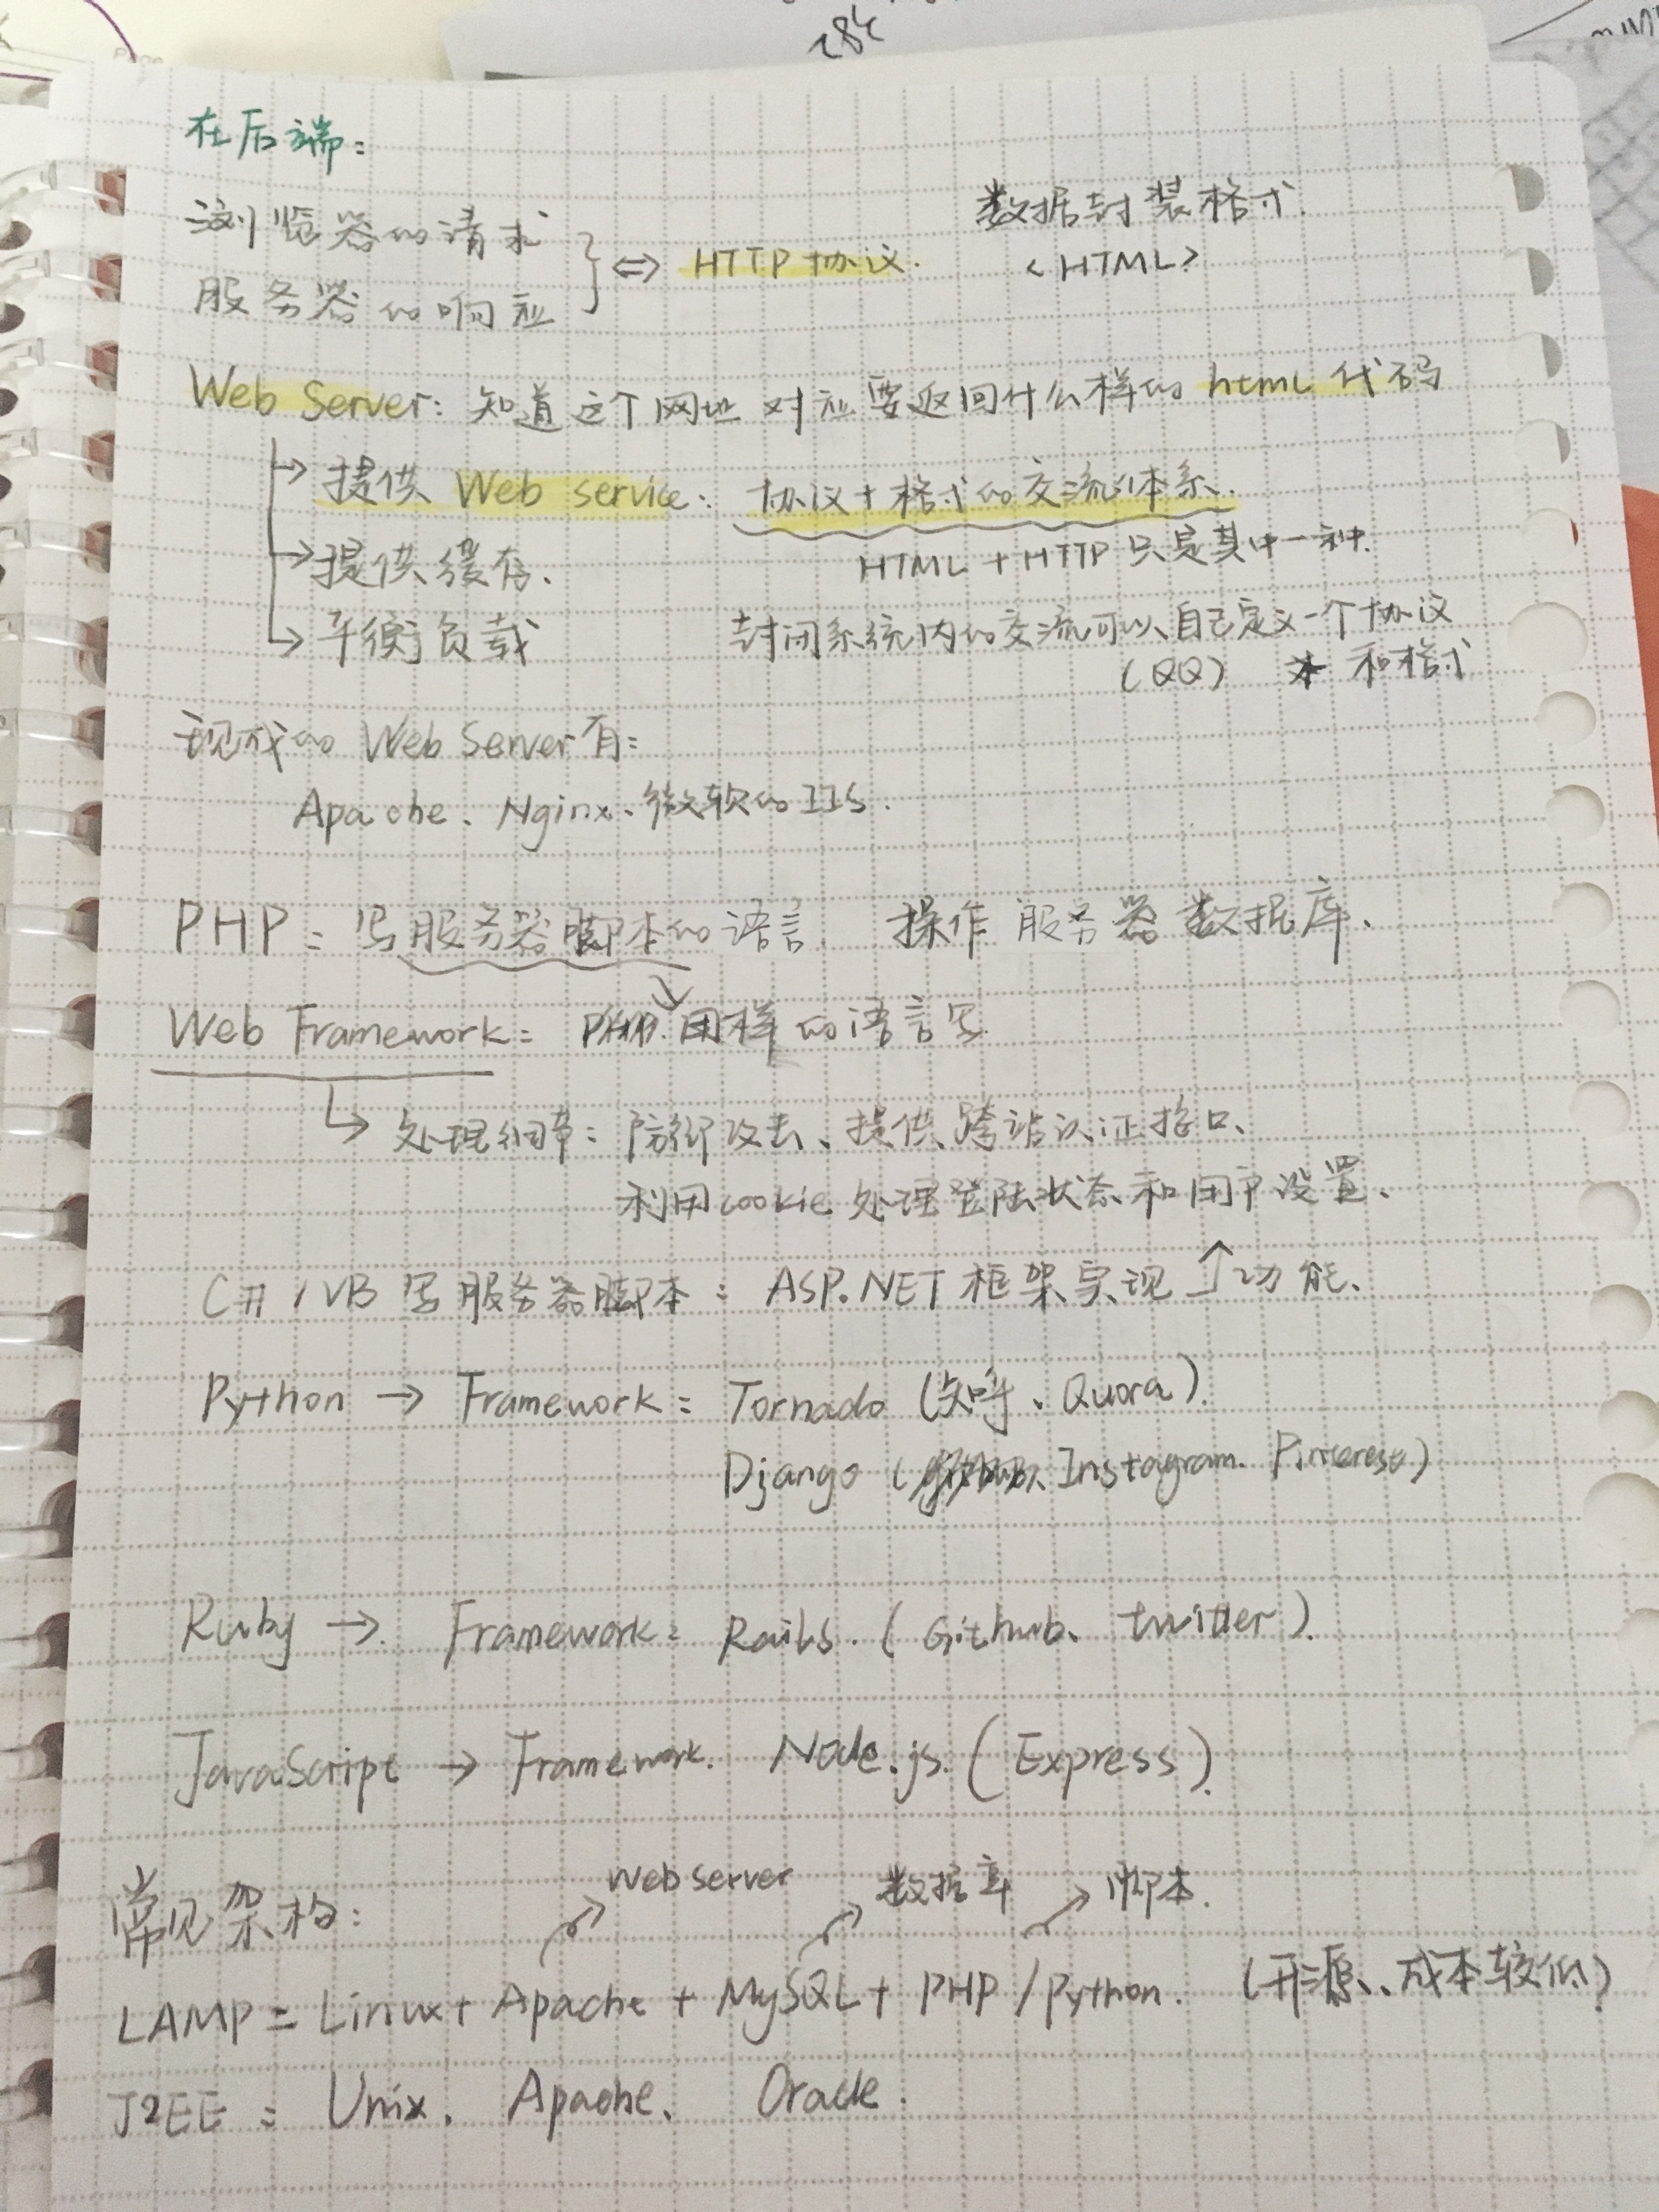 在后端:
浏览器的请求
服务器的响应
⇔ HTTP 协议.
数据封装格式.
<HTML>
Web Server: 知道这个网址对应要返回什么样的 html 代码
→提供 Web service: 协议+格式的交流体系.
HTML + HTTP 只是其中一种.
→提供缓存、
→平衡负载
封闭系统内的交流可以自己定义一个协议
(QQ) 和格式
现成的 Web Server 有:
Apache、Nginx、微软的IIS.
PHP: 写服务器脚本的语言. 操作服务器数据库、
Web Framework: 用同样的语言写
→ 处理细节: 防御攻击、提供跨站认证接口、
利用cookie 处理登陆状态和用户设置、
C# / VB 写服务器脚本: ASP.NET 框架实现 ↑功能、
Python → Framework: Tornado (知乎、Quora).
Django (Instagram. Pinterest)
Ruby → Framework: Rails. (Github、twitter).
JavaScript → Framework. Node.js. (Express).
常见架构:
Web server
数据库
脚本.
LAMP = Linux + Apache + MySQL + PHP / Python. (开源、成本较低)
J2EE: Unix. Apache、Oracle.